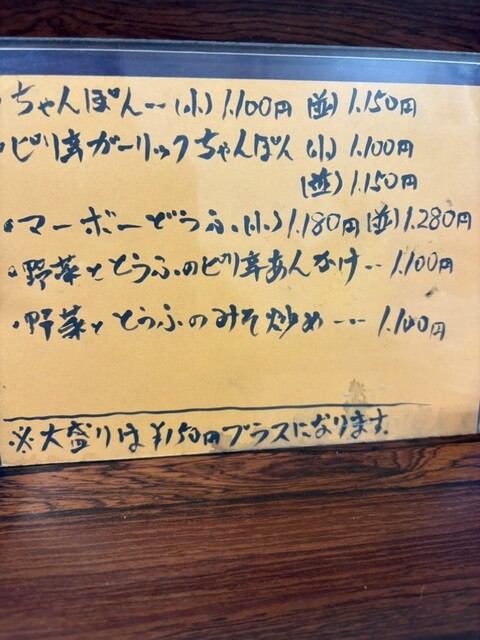 ・ちゃんぽん…(小)1.100円 (並)1.150円
・ピリ辛ガーリックちゃんぽん (小)1.100円
(並)1.150円
・マーボーどうふ.(小)1.180円(並)1.280円
・野菜ととうふのピリ辛あんかけ‥1.100円
・野菜ととうふのみそ炒め…1.100円
※大盛りは¥150円プラスになります。